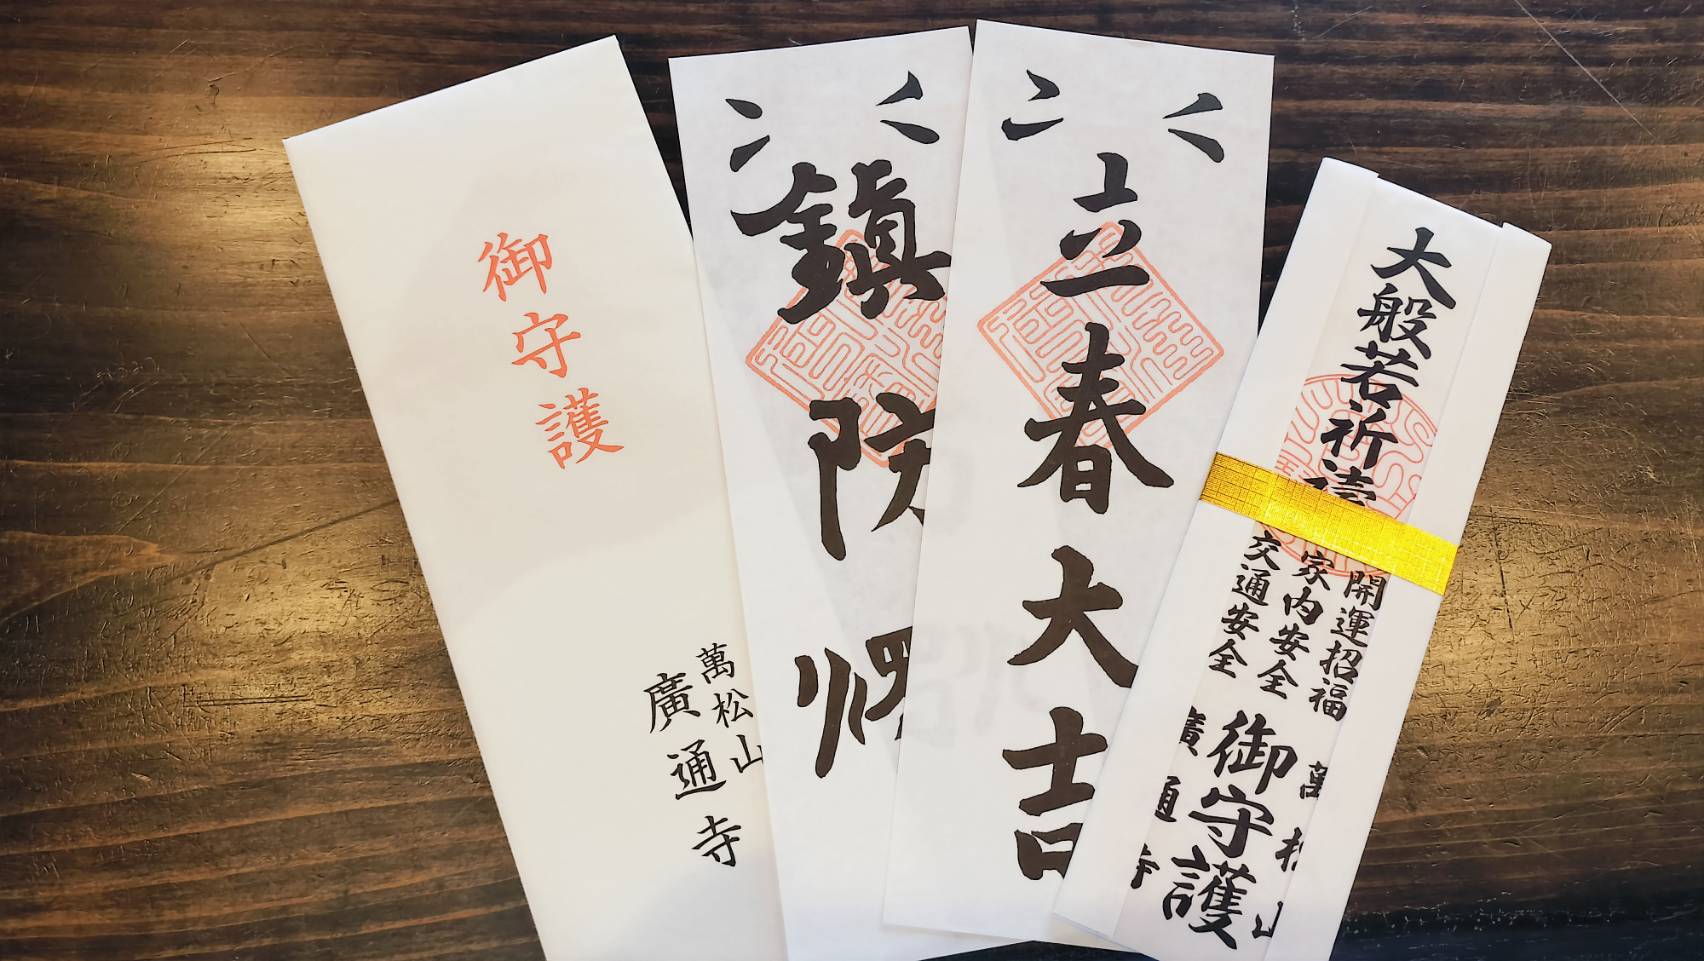 御守護
萬松山
廣通寺
鎮防燭
立春大吉
大般若祈祷
開運招福
家内安全
交通安全
御守護
萬松山
廣通寺